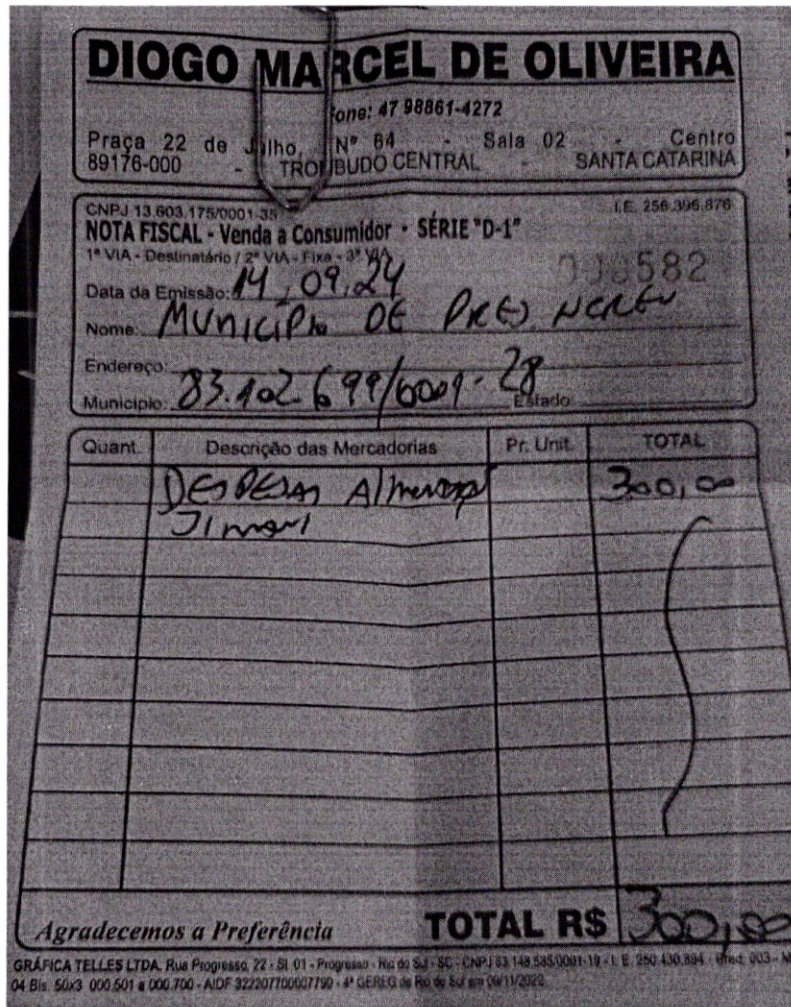 DIOGO MARCEL DE OLIVEIRA
Fone: 47 98861-4272
Praça 22 de Julho, Nº 64 - Sala 02 - Centro
89176-000 - TROMBUDO CENTRAL - SANTA CATARINA
CNPJ 13.603.175/0001-35 I.E. 256.396.876
NOTA FISCAL - Venda a Consumidor - SÉRIE "D-1"
1ª VIA - Destinatário / 2ª VIA - Fixa - 3ª VIA
000582
Data da Emissão: 14.09.24
Nome: MUNICÍPIO DE PRES NEREU
Endereço:
Município: 83.102.699/0001-28 Estado
Quant. Descrição das Mercadorias Pr. Unit. TOTAL
DESPESAS 300,00
Agradecemos a Preferência TOTAL R$ 300,00
GRÁFICA TELLES LTDA. Rua Progresso, 22 - Sl. 01 - Progresso - Rio do Sul - SC - CNPJ 83.148.585/0001-19 - I. E. 250.430.894 - 003 - M
04 Bls. 50x3 000.501 a 000.700 - AIDF 322207700007790 - 4ª GEREG de Rio do Sul em 09/11/2022